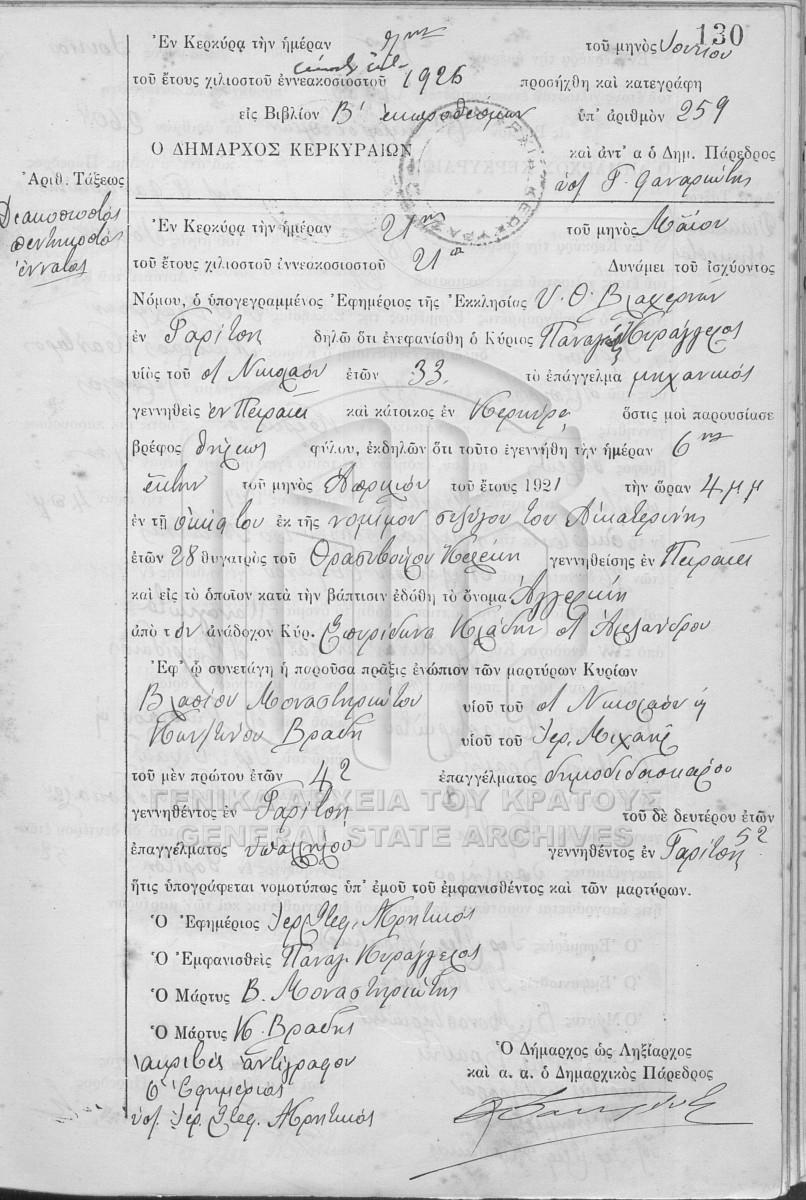 130
Ἐν Κερκύρᾳ τὴν ἡμέραν 7ην τοῦ μηνὸς Ἰουνίου
τοῦ ἔτους χιλιοστοῦ ἐννεακοσιοστοῦ 1926 προσήχθη καὶ κατεγράφη
εἰς Βιβλίον Β' ἐκπροθέσμων ὑπ' ἀριθμὸν 259
Ο ΔΗΜΑΡΧΟΣ ΚΕΡΚΥΡΑΙΩΝ καὶ ἀντ' α ὁ Δημ. Πάρεδρος
Ἀριθ. Τάξεως
ὑπ Γ. Φαναριώτης
Διακοσιοστὸς
πεντηκοστὸς
ἔννατος
Ἐν Κερκύρᾳ τὴν ἡμέραν 21ην τοῦ μηνὸς Μαΐου
τοῦ ἔτους χιλιοστοῦ ἐννεακοσιοστοῦ 21ου Δυνάμει τοῦ ἰσχύοντος
Νόμου, ὁ ὑπογεγραμμένος Ἐφημέριος τῆς Ἐκκλησίας Υ. Θ. Βλαχερνῶν
ἐν Γαρίτσῃ δηλῶ ὅτι ἐνεφανίσθη ὁ Κύριος Παναγ. Κυράγγελος
υἱὸς τοῦ Νικολάου ἐτῶν 33. τὸ ἐπάγγελμα μηχανικὸς
γεννηθεὶς ἐν Πειραιεῖ καὶ κάτοικος ἐν Κερκύρᾳ ὅστις μοὶ παρουσίασε
βρέφος θήλεως φύλου, ἐκδηλῶν ὅτι τοῦτο ἐγεννήθη τὴν ἡμέραν 6ην
ἕκτην τοῦ μηνὸς Ἀπριλίου τοῦ ἔτους 1921 τὴν ὥραν 4 μμ
ἐν τῇ οἰκίᾳ του ἐκ τῆς νομίμου συζύγου του Αἰκατερίνης
ἐτῶν 28 θυγατρὸς τοῦ Θρασυβούλου γεννηθείσης ἐν Πειραιεῖ
καὶ εἰς τὸ ὁποῖον κατὰ τὴν βάπτισιν ἐδόθη τὸ ὄνομα Ἀγγελικὴ
ἀπὸ τὸν ἀνάδοχον Κύρ. Σπυρίδωνα Κλάδην Ἀλεξάνδρου
Ἐφ' ᾧ συνετάγη ἡ παροῦσα πρᾶξις ἐνώπιον τῶν μαρτύρων Κυρίων
Βλασίου Μοναστηριώτου υἱοῦ τοῦ Νικολάου ἢ
Κων/τίνου Βράδη υἱοῦ τοῦ Ἰερ. Μιχαὴλ
τοῦ μὲν πρώτου ἐτῶν 42 ἐπαγγέλματος δημοδιδασκάλου
γεννηθέντος ἐν Γαρίτσῃ τοῦ δὲ δευτέρου ἐτῶν 52
ἐπαγγέλματος ὑπαλλήλου γεννηθέντος ἐν Γαρίτσῃ
ἥτις ὑπογράφεται νομοτύπως ὑπ' ἐμοῦ τοῦ ἐμφανισθέντος καὶ τῶν μαρτύρων.
Ὁ Ἐφημέριος Ἱερ. Στεφ.
Ὁ Ἐμφανισθεὶς Παναγ. Κυράγγελος
Ὁ Μάρτυς Β. Μοναστηριώτης
Ὁ Μάρτυς Κ. Βράδης
Ἀκριβὲς ἀντίγραφον
Ὁ Ἐφημέριος
ὑπ. Ἱερ. Στεφ.
Ὁ Δήμαρχος ὡς Ληξίαρχος
καὶ α. α. ὁ Δημαρχικὸς Πάρεδρος
ΓΕΝΙΚΑ ΑΡΧΕΙΑ ΤΟΥ ΚΡΑΤΟΥΣ
GENERAL STATE ARCHIVES